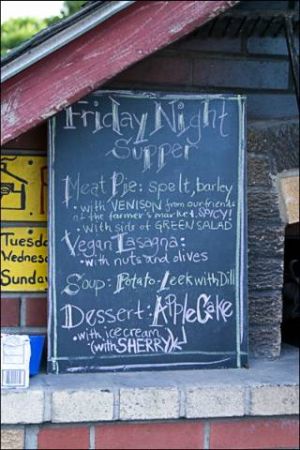 Friday Night
Supper
Meat Pie: spelt, barley
• with VENISON from our friends
at the farmer's market. SPICY!
• with side of GREEN SALAD
Vegan Lasagna:
• with nuts and olives
Soup: Potato-Leek with Dill
Dessert: Apple Cake
• with ice cream
(with SHERRY)
Tuesda
Wednes
Sunday